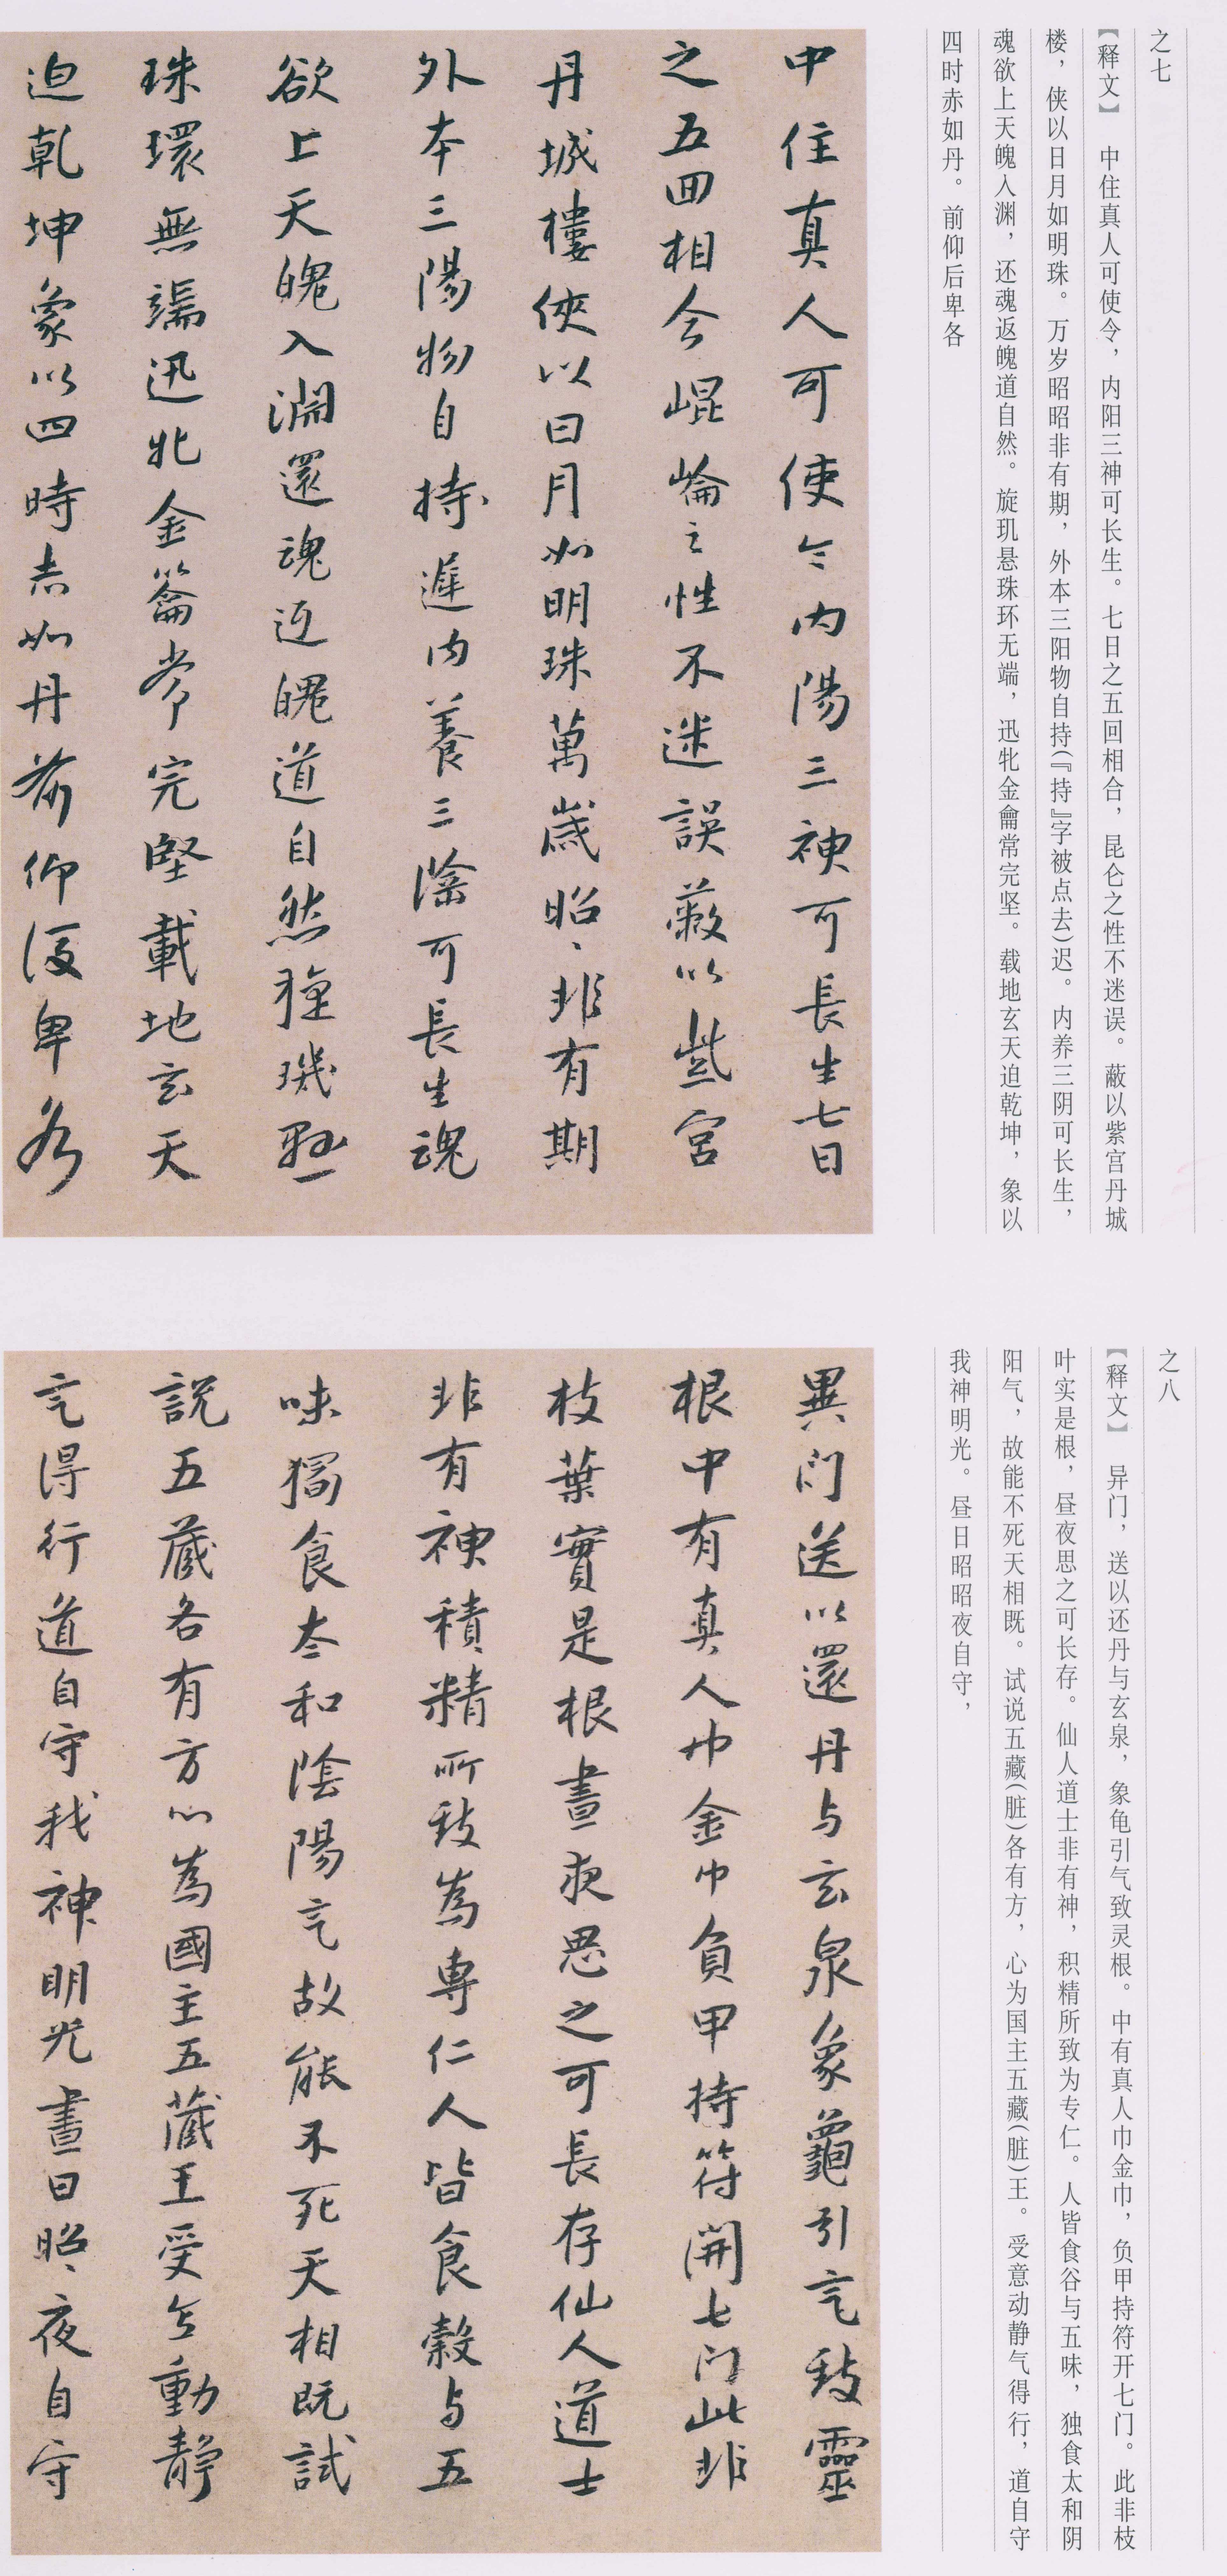 之七
【释文】 中住真人可使令，内阳三神可长生。七日之五回相合，昆仑之性不迷误。蔽以紫宫丹城
楼，侠以日月如明珠。万岁昭昭非有期，外本三阳物自持(『持』字被点去)迟。内养三阴可长生，
魂欲上天魄入渊，还魂返魄道自然。旋玑悬珠环无端，迅牝金龠常完坚。载地玄天迫乾坤，象以
四时赤如丹。前仰后卑各
中住真人可使令内陽三神可長生七日
之五回相合崐崙之性不迷誤蔽以紫宮
丹城樓俠以日月如明珠萬歲昭〻非有期
外本三陽物自持遲内養三陰可長生魂
欲上天魄入淵還魂返魄道自然琁璣懸
珠環無端迅牝金籥常完堅載地玄天
迫乾坤象以四時赤如丹前仰後卑各
之八
【释文】 异门，送以还丹与玄泉，象龟引气致灵根。中有真人巾金巾，负甲持符开七门。此非枝
叶实是根，昼夜思之可长存。仙人道士非有神，积精所致为专仁。人皆食谷与五味，独食太和阴
阳气，故能不死天相既。试说五藏(脏)各有方，心为国主五藏(脏)王。受意动静气得行，道自守
我神明光。昼日昭昭夜自守，
異门送以還丹与玄泉象龜引气致靈
根中有真人巾金巾負甲持符開七门此非
枝葉實是根晝夜思之可長存仙人道士
非有神積精所致為專仁人皆食穀与五
味獨食太和陰陽气故能不死天相既試
說五藏各有方心為國主五藏王受意動靜
气得行道自守我神明光晝日昭〻夜自守